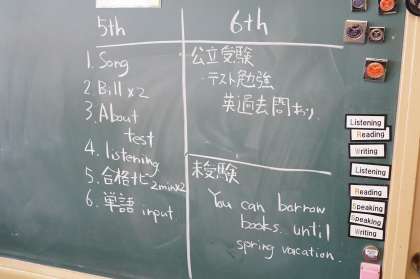 5th
1. Song
2 Bill x2
3. About
test
4. listening
5. 合格ナビ 2min×2
6. 単語 input
6th
公立受験
・テスト勉強
英過去問あり.
未受験
You can borrow
books until
spring vacation.
Listening
Reading
Writing
Listening
Reading
Speaking
Speaking
Writing